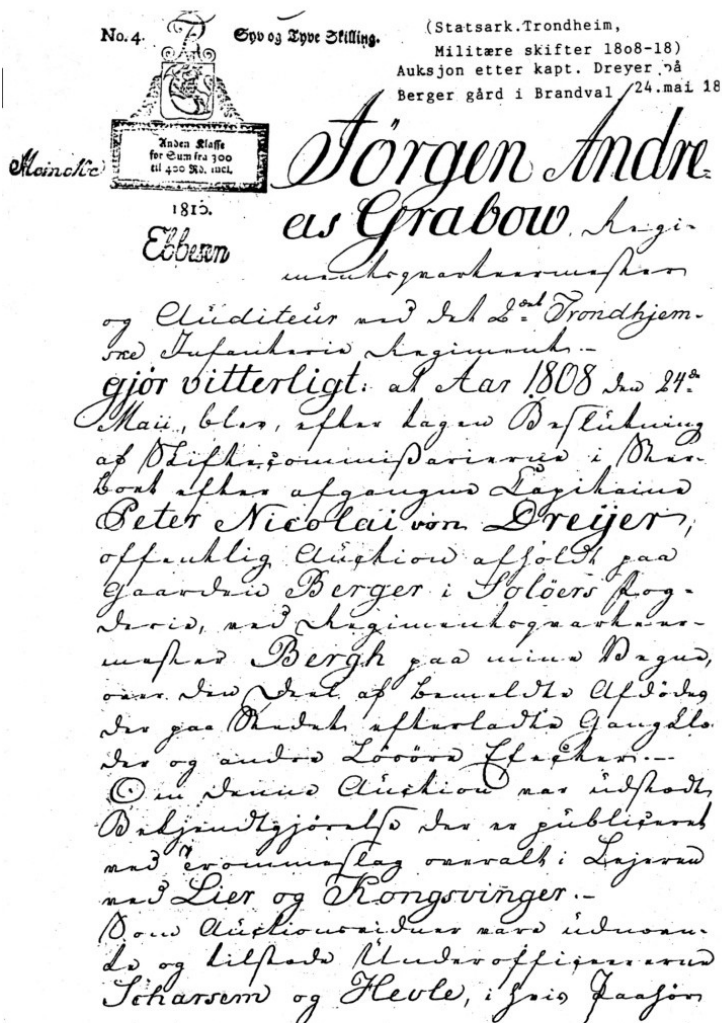 No. 4.
Syv og Tyve Skilling.
(Statsark.Trondheim,
Militære skifter 1808-18)
Auksjon etter kapt. Dreyer på
Berger gård i Brandval 24.mai 18
Anden Klasse
for Sum fra 300
til 400 Rd. incl.
1810.
Ebbesen
Jörgen Andre-
as Grabow, Regi-
mentsqvarteermester
og Auditeur ved det 2det Trondhjem-
ske Infanterie Regiment.-
gjör vitterligt: at Aar 1808 den 24de
Maii, blev, efter tagen Beslutning
af Skiftecommissarierne i Ster-
boet efter afgangne Capitaine
Peter Nicolai von Dreyer,
offentlig Auction afholdt paa
Gaarden Berger i Solöers Fog-
derie, ved Regimentsqvarteer-
mester Bergh paa mine Vegne,
over den Deel af bemeldte Afdödes
der paa Stedet efterladte Gangklæ-
der og andre Lösöre Efecter.-
Om denne Auction var udstædt
Bekjendtgjørelse der er publiceret
ved Trommeslag overalt i Lejeren
ved Lier og Kongsvinger.-
Som Auctionsvidner vare udnævn-
te og tilstede Underofficererne
Scharsem og Hevle, i hvis Paahör